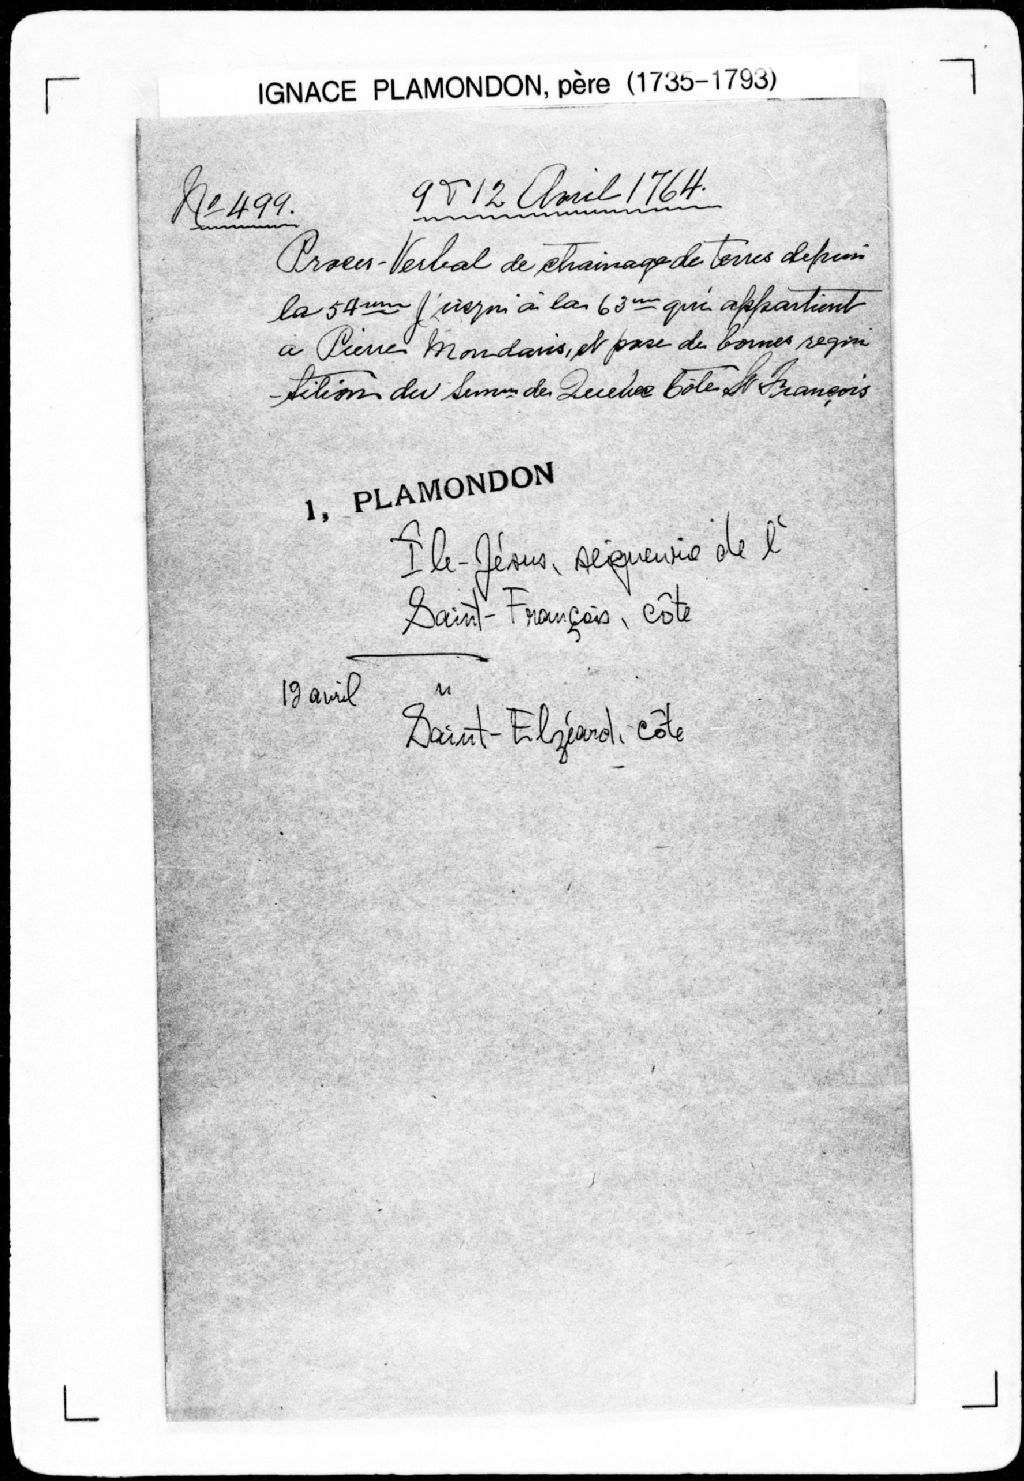 IGNACE PLAMONDON, père (1735-1793)
No 499. 9 & 12 Avril 1764.
Proces-Verbal de chainage de terres depuis
la 54eme jusqu'à la 63me qui appartient
a Pierre Mondavis, et pose de bornes requi
-sition du Semre de Quebec Côte St François
1, PLAMONDON
Île-Jésus, seigneurie de l'
Saint-François, côte
19 avril "
Saint-Elzéard, côte